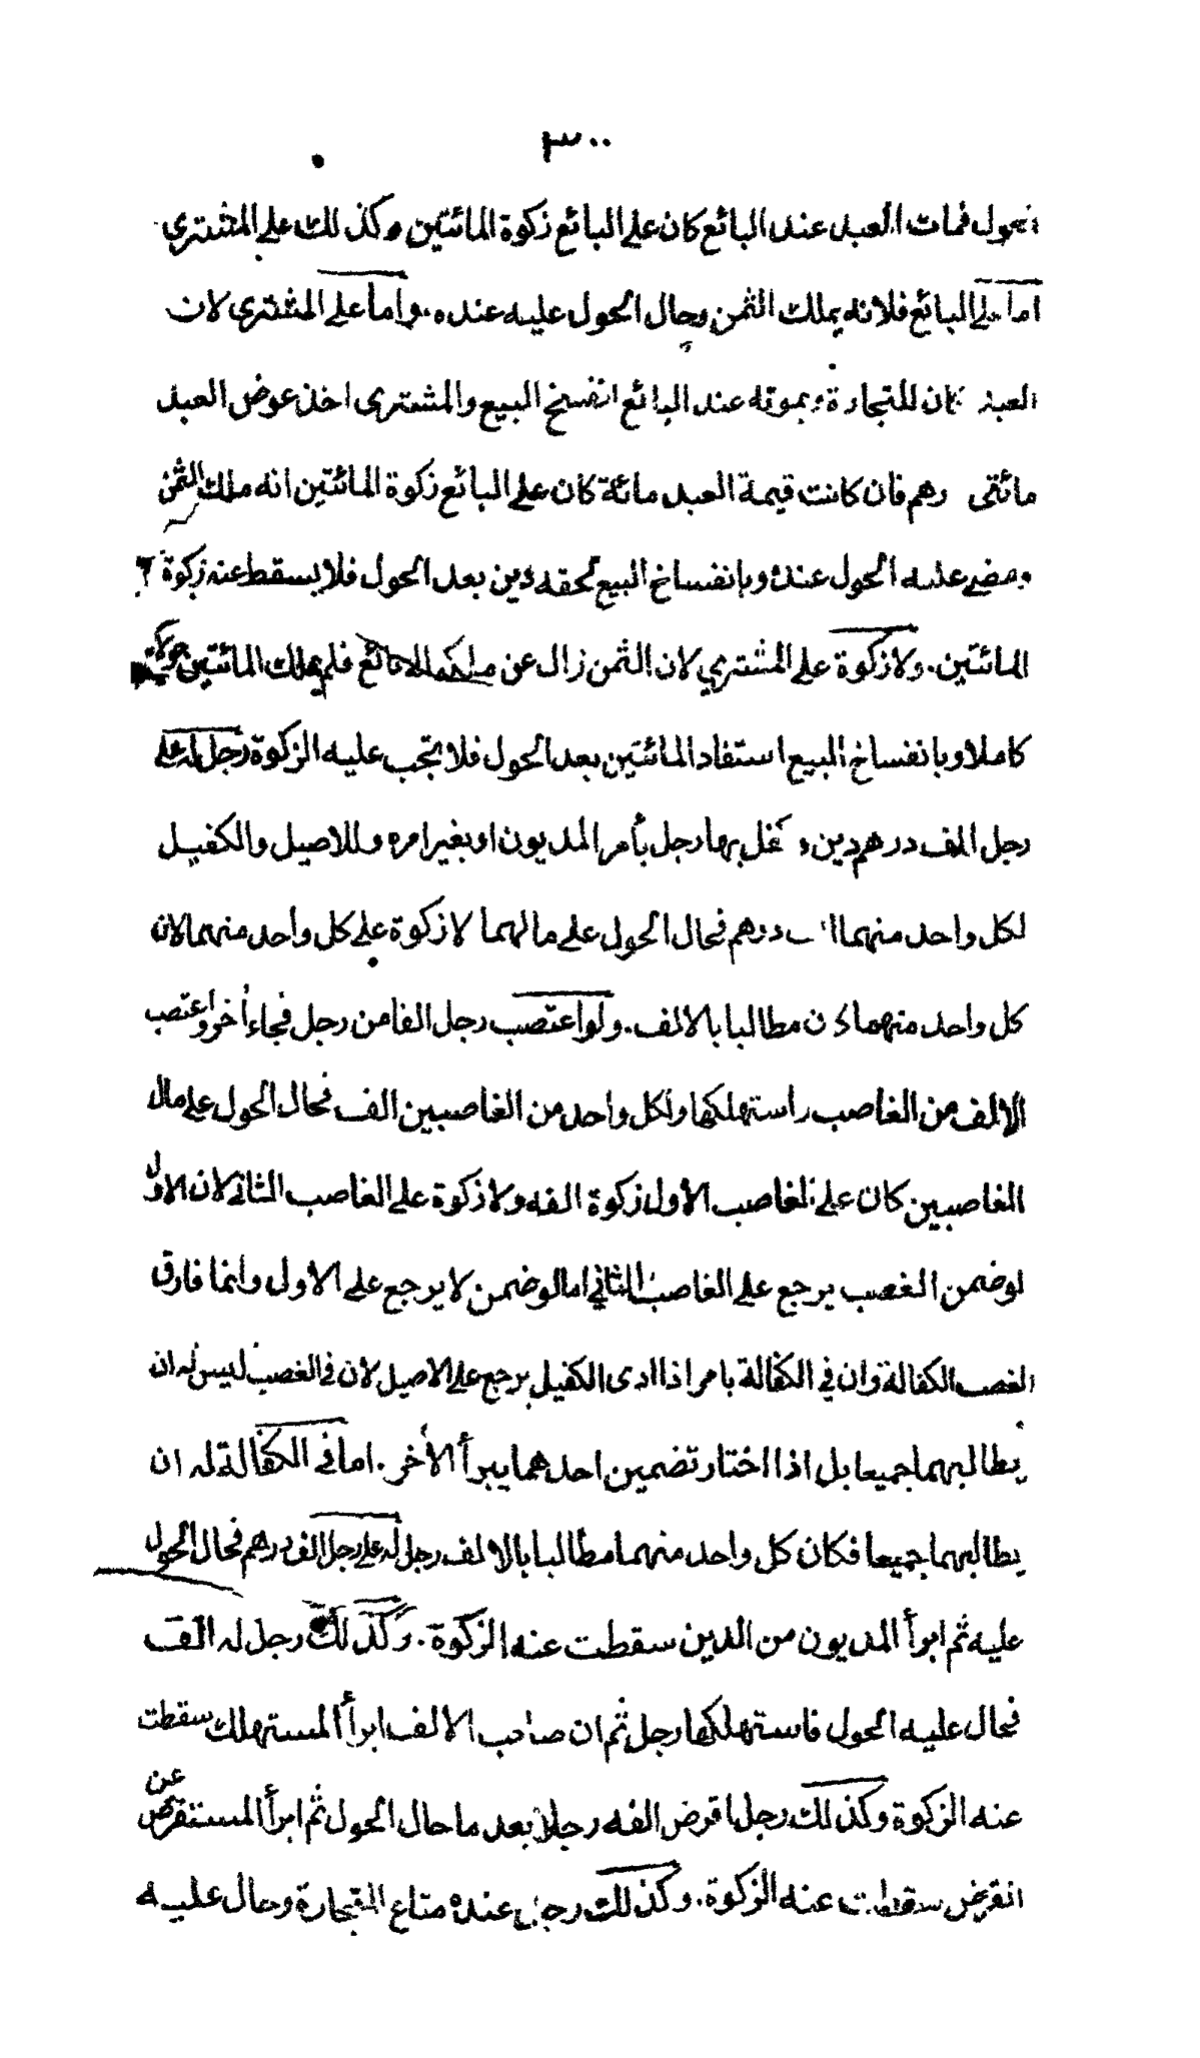 ٣٠٠
الحول فمات العبد عند البائع كان على البائع زكوة المائتين وكذلك على المشترى
اما على البائع فلانه يملك الثمن وحال الحول عليه عنده. واما على المشترى لان
العبد كان للتجارة وبموته عند البائع انفسخ البيع والمشترى اخذ عوض العبد
مائتى رهم فان كانت قيمة العبد مائة كان على البائع زكوة المائتين انه ملك الثمن
ومضى عليه الحول عنده وبانفساخ البيع لحقه دين بعد الحول فلا يسقط عنه زكوة
المائتين. ولا زكوة على المشترى لان الثمن زال عن ملكه الى البائع فلم يملك المائتين حولا
كاملا وبانفساخ البيع استفاد المائتين بعد الحول فلا تجب عليه الزكوة رجل له على
رجل الف درهم دين و كفل بها رجل بأمر المديون او بغير امره وللاصيل والكفيل
لكل واحد منهما الف درهم فحال الحول على مالهما لا زكوة على كل واحد منهما لان
كل واحد منهما كان مطالبا بالالف. ولو اغتصب رجل الفا من رجل فجاء أخر واغتصب
الالف من الغاصب واستهلكها ولكل واحد من الغاصبين الف فحال الحول على مال
الغاصبين كان على الغاصب الاول زكوة الفه ولا زكوة على الغاصب الثانى لان الاول
لو ضمن الغصب يرجع على الغاصب الثاني اما لو ضمن لا يرجع على الاول وانما فارق
الغصب الكفالة وان في الكفالة بامر اذا ادى الكفيل يرجع على الاصيل لان في الغصب ليس له ان
يطالبهما جميعا بل اذا اختار تضمين احدهما يبرأ الأخر. اما في الكفالة له ان
يطالبهما جميعا فكان كل واحد منهما مطالبا بالالف رجل له على رجل الف درهم فحال الحول
عليه ثم ابرأ المديون من الدين سقطت عنه الزكوة. وكذلك رجل له الف
فحال عليه الحول فاستهلكها رجل ثم ان صاحب الالف ابرأ المستهلك سقطت
عنه الزكوة وكذلك رجل اقرض الفه رجلا بعد ما حال الحول ثم ابرأ المستقرض عن
القرض سقطت عنه الزكوة. وكذلك رجل عنده متاع التجارة وحال عليه